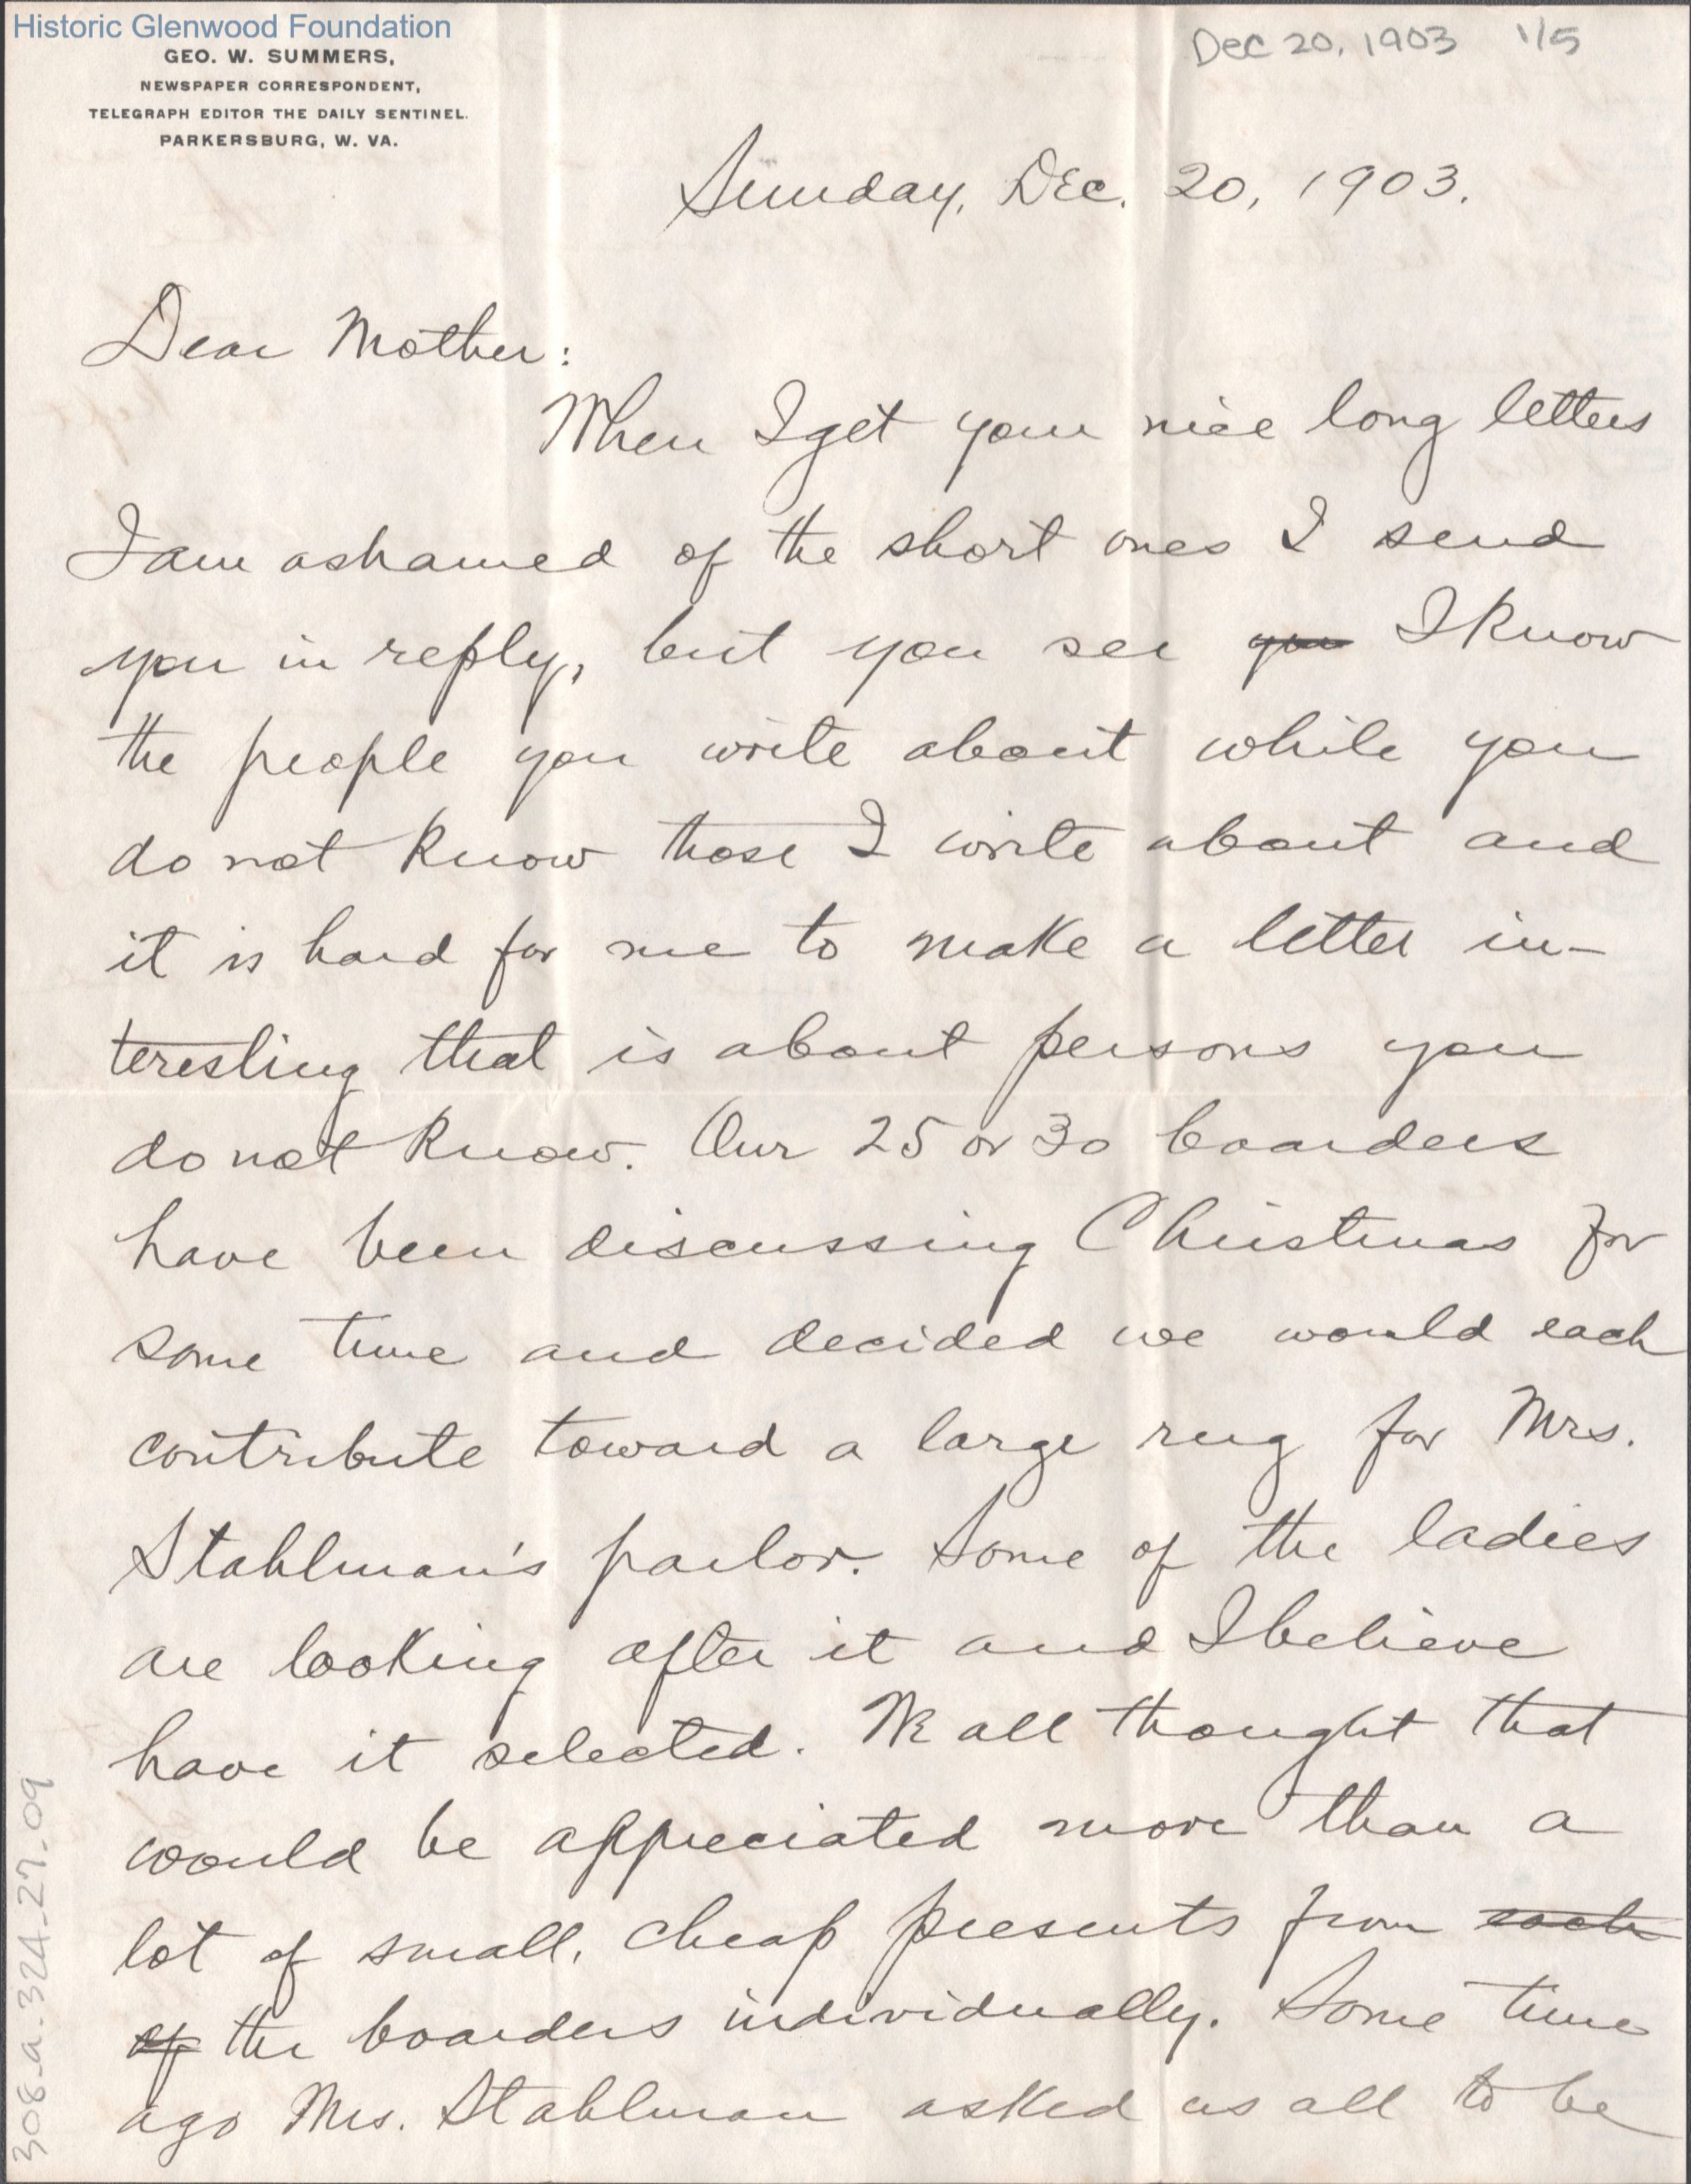 Historic Glenwood Foundation
GEO. W. SUMMERS,
NEWSPAPER CORRESPONDENT,
TELEGRAPH EDITOR THE DAILY SENTINEL.
PARKERSBURG, W. VA.
Dec 20, 1903 1/5
Sunday, Dec. 20, 1903.
Dear Mother:
When I get your nice long letters
I am ashamed of the short ones I send
you in reply, but you see you I know
the people you write about while you
do not know those I write about and
it is hard for me to make a letter in-
teresting that is about persons you
do not know. Our 25 or 30 boarders
have been discussing Christmas for
some time and decided we would each
contribute toward a large rug for Mrs.
Stahlman's parlor. Some of the ladies
are looking after it and I believe
have it selected. We all thought that
would be appreciated more than a
lot of small, cheap presents from each
of the boarders individually. Some time
ago Mrs. Stahlman asked us all to be
308-a.324-27-09